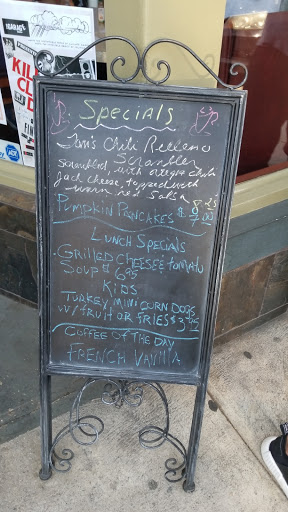 KILL
Specials
Tom's Chili Relleno
Scrambler
scrambled, with ortega chili
jack cheese, topped with
warm red salsa 8.25
Pumpkin Pancakes $7.00
Lunch Specials
Grilled Cheese & Tomato
Soup $6.95
Kids
Turkey Mini Corn Dogs
w/ fruit or fries $3.95
Coffee Of The Day
French Vanilla